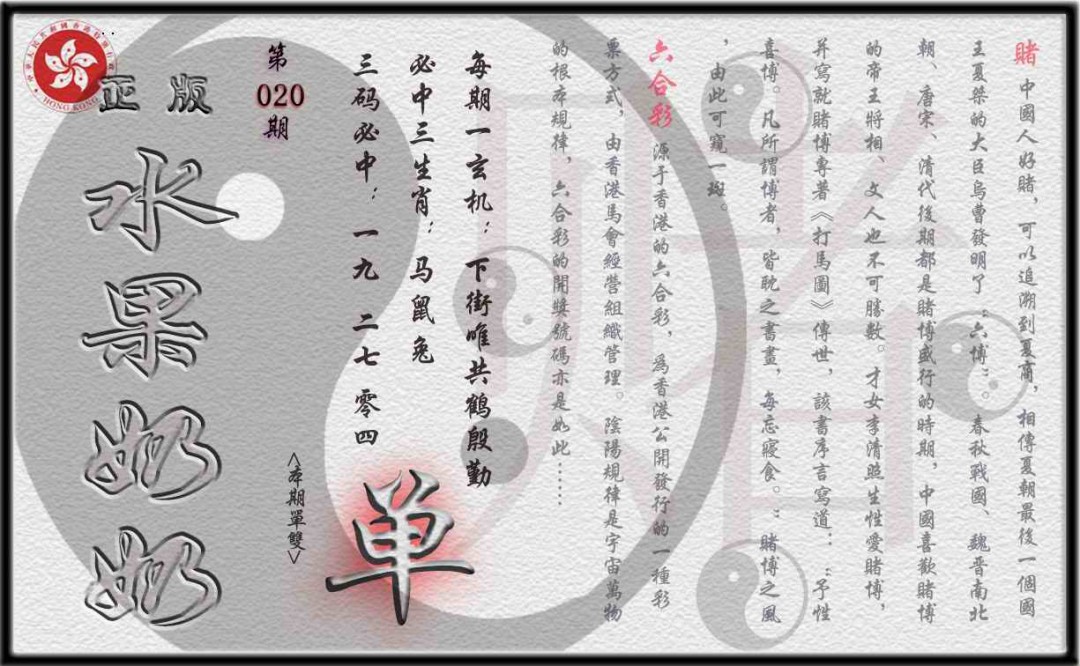 賭 中國人好賭，可以追溯到夏商，相傳夏朝最後一個國
王夏桀的大臣烏曹發明了“六博”。春秋戰國、魏晉南北
朝、唐宋、清代後期都是賭博盛行的時期，中國喜歡賭博
的帝王將相、文人也不可勝數。才女李清照生性愛賭博，
并寫就賭博專著《打馬圖》傳世，該書序言寫道：“予性
喜博。凡所謂博者，皆耽之書畫，每忘寢食。”賭博之風
，由此可窺一斑。
六合彩 源于香港的六合彩，為香港公開發行的一種彩
票方式，由香港馬會經營組織管理。陰陽規律是宇宙萬物
的根本規律，六合彩的開獎號碼亦是如此……
每期一玄机：下街唯共鹤殷勤
必中三生肖：马鼠兔
三码必中：一九 二七 零四
单
<本期單雙>
第
020
期
正版
水果奶奶
HONG KONG